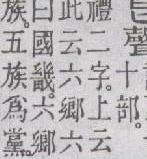 聲十部。
禮二字。上云
此云六鄉六
曰國畿六鄉
族。五族為黨。